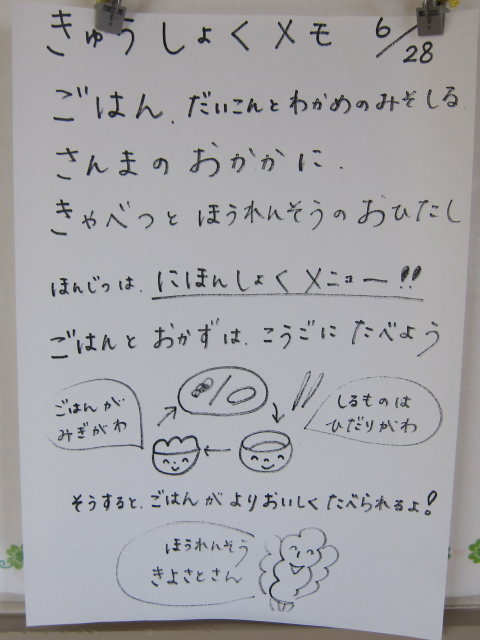 きゅうしょくメモ 6/28
ごはん、だいこんとわかめのみそしる
さんまのおかかに、
きゃべつとほうれんそうのおひたし
ほんじつは、にほんしょくメニュー!!
ごはんとおかずは、こうごにたべよう
ごはんが
みぎがわ
しるものは
ひだりがわ
そうすると、ごはんがよりおいしくたべられるよ!
ほうれんそう
きよさとさん